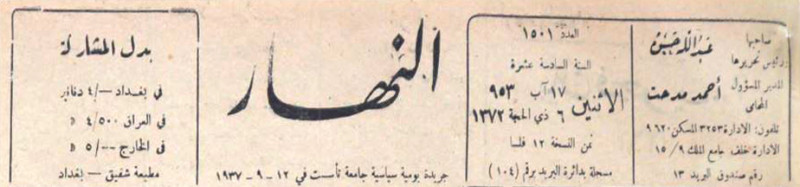 صاحبها
ورئيس تحريرها
عبدالله حسن
المدير المسؤول
المحامي
أحمد مدحت
تلفون: الادارة ٣٢٥٣ المسكن ٩٦٢٠
الادارة خلف جامع الملك ١٥/٩
رقم صندوق البريد ١٣
العدد ١٥٠١
السنة السادسة عشرة
الاثنين
١٧ آب ٩٥٣
٦ ذي الحجة ١٣٧٢
ثمن النسخة ١٢ فلسا
مسجلة بدائرة البريد برقم (١٠٤)
النهار
جريدة يومية سياسية جامعة تأست في ١٢ - ٩ - ١٩٣٧
بدل المشاركة
في بغداد —/٤ دنانير
في العراق ٤/٥٠٠ »
في الخارج —/٥ »
مطبعة شفيق - بغداد